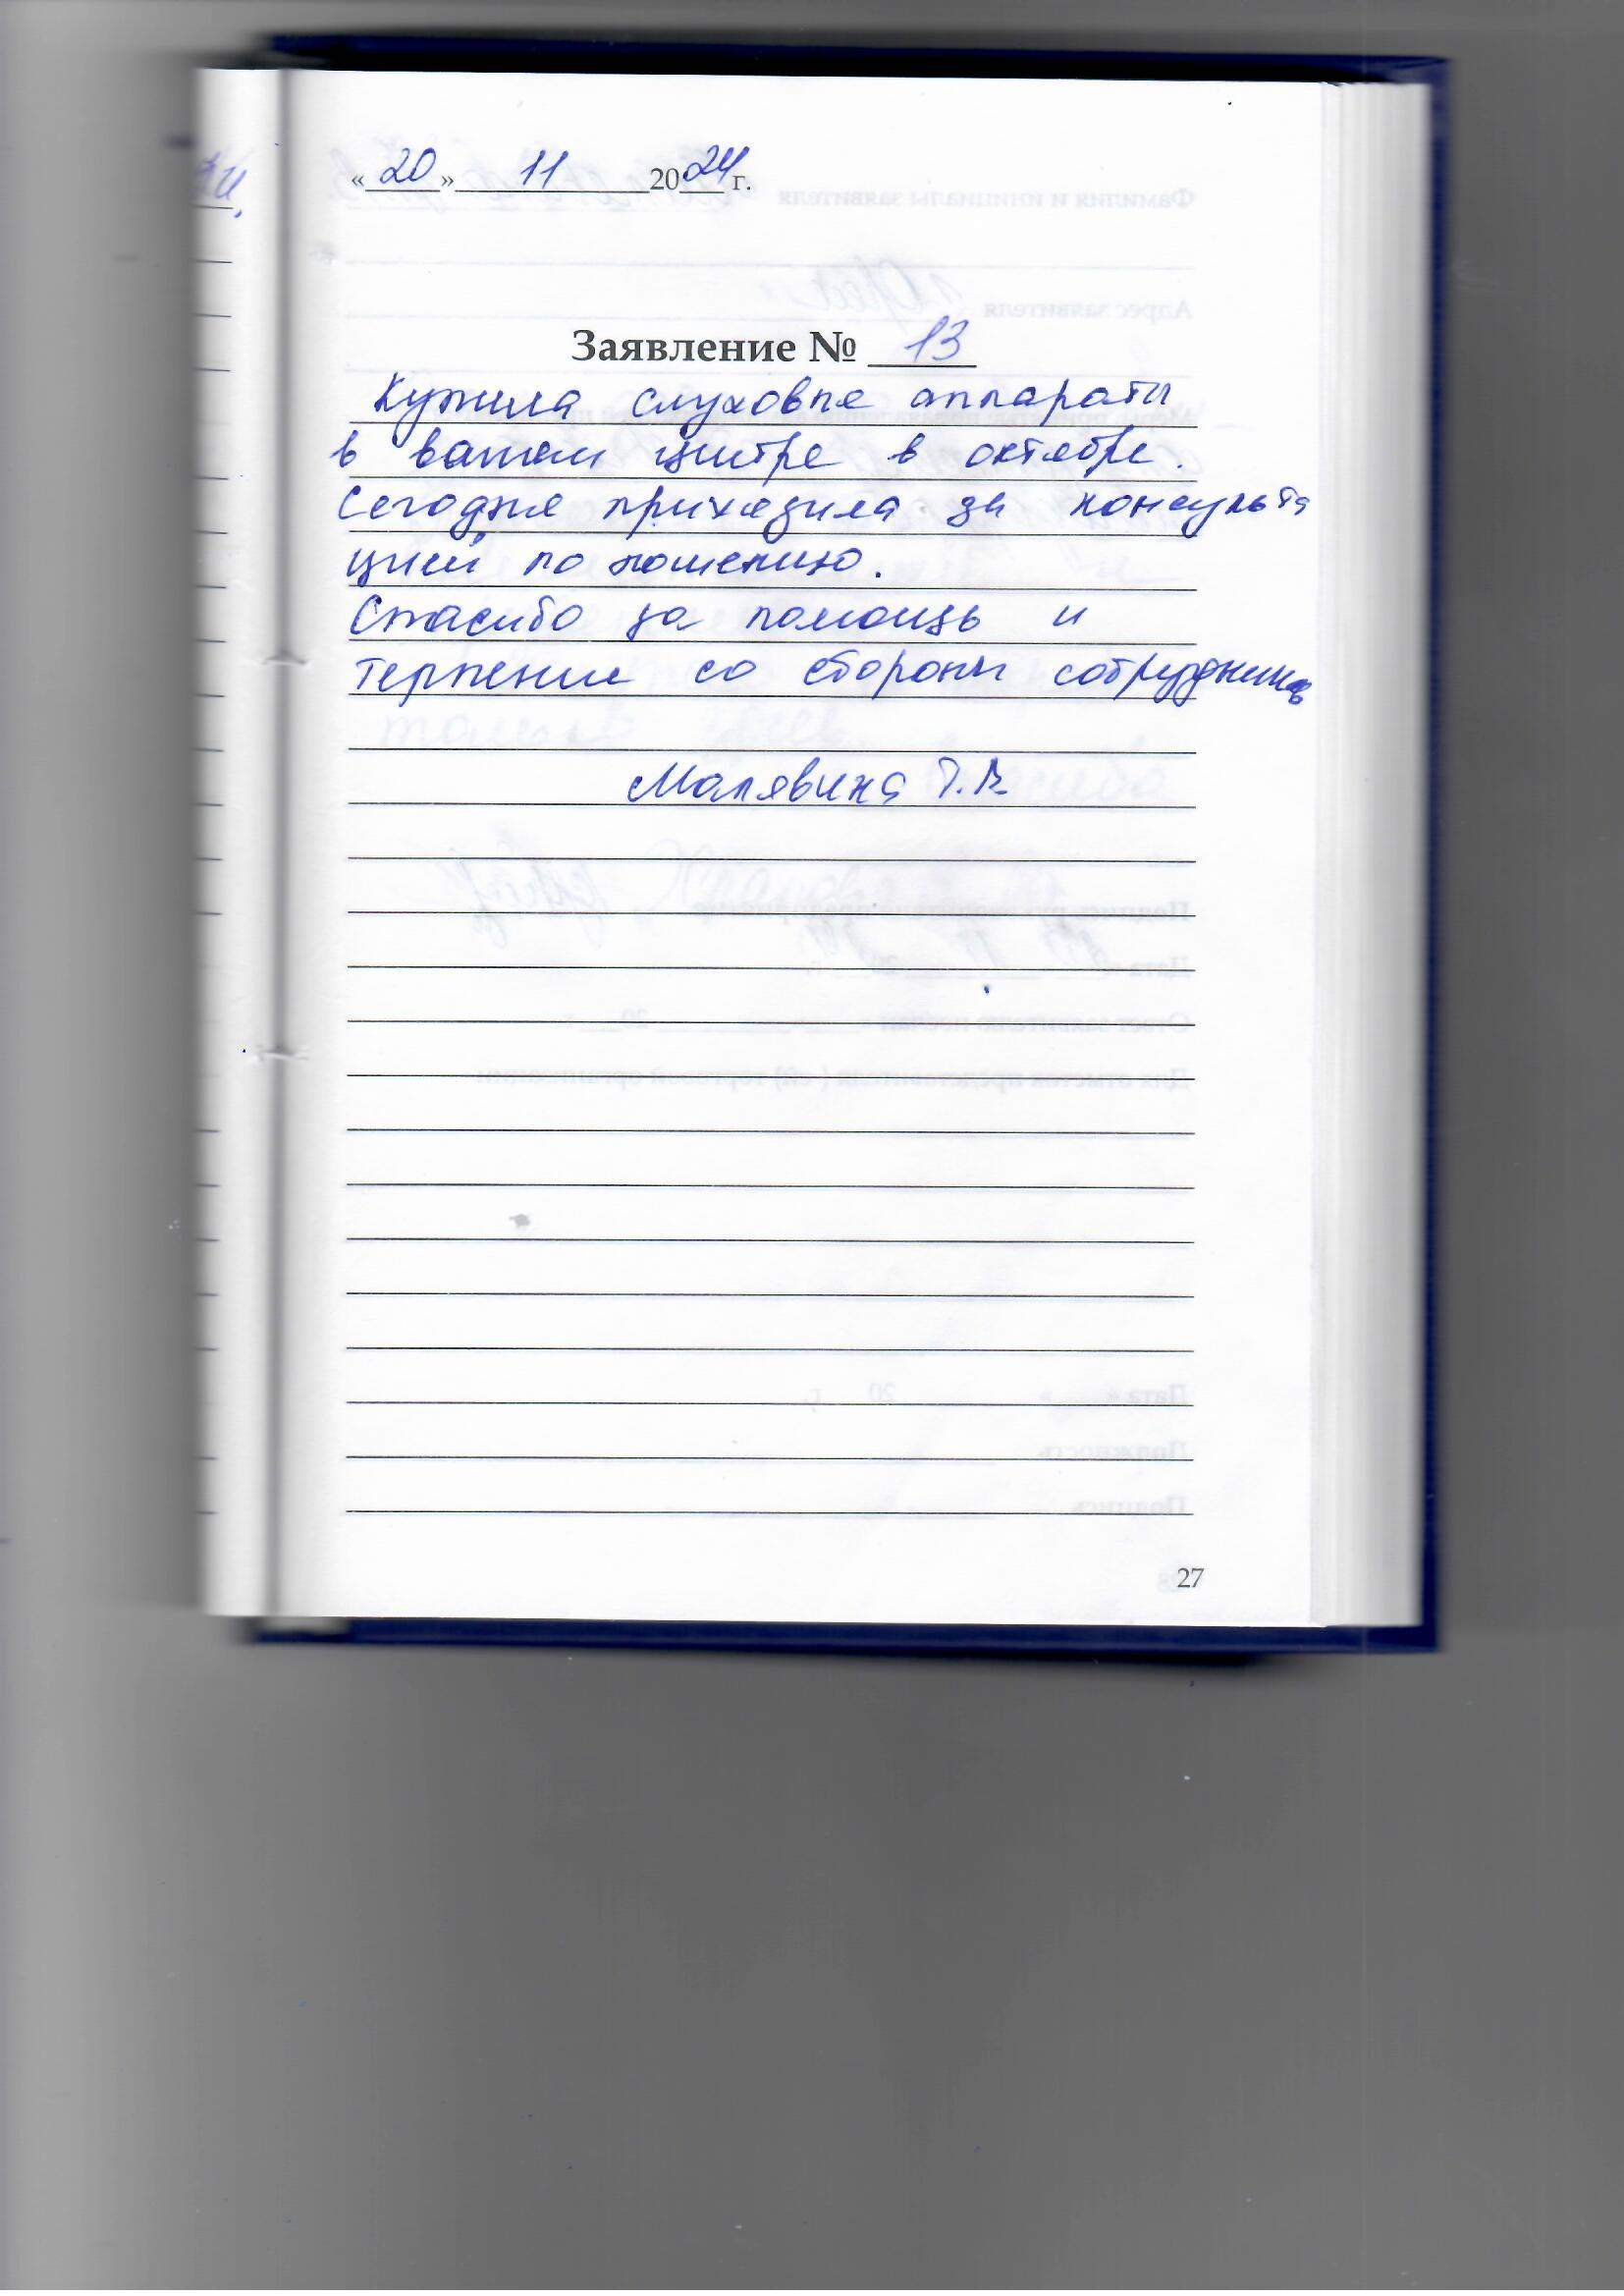 «20» 11 2024 г.
Заявление № 13
Купила слуховые аппараты
в вашем центре в октябре.
Сегодня приходила за консульта
цией по ношению.
Спасибо за помощь и
терпение со стороны сотрудников
Малявина Т.В
27